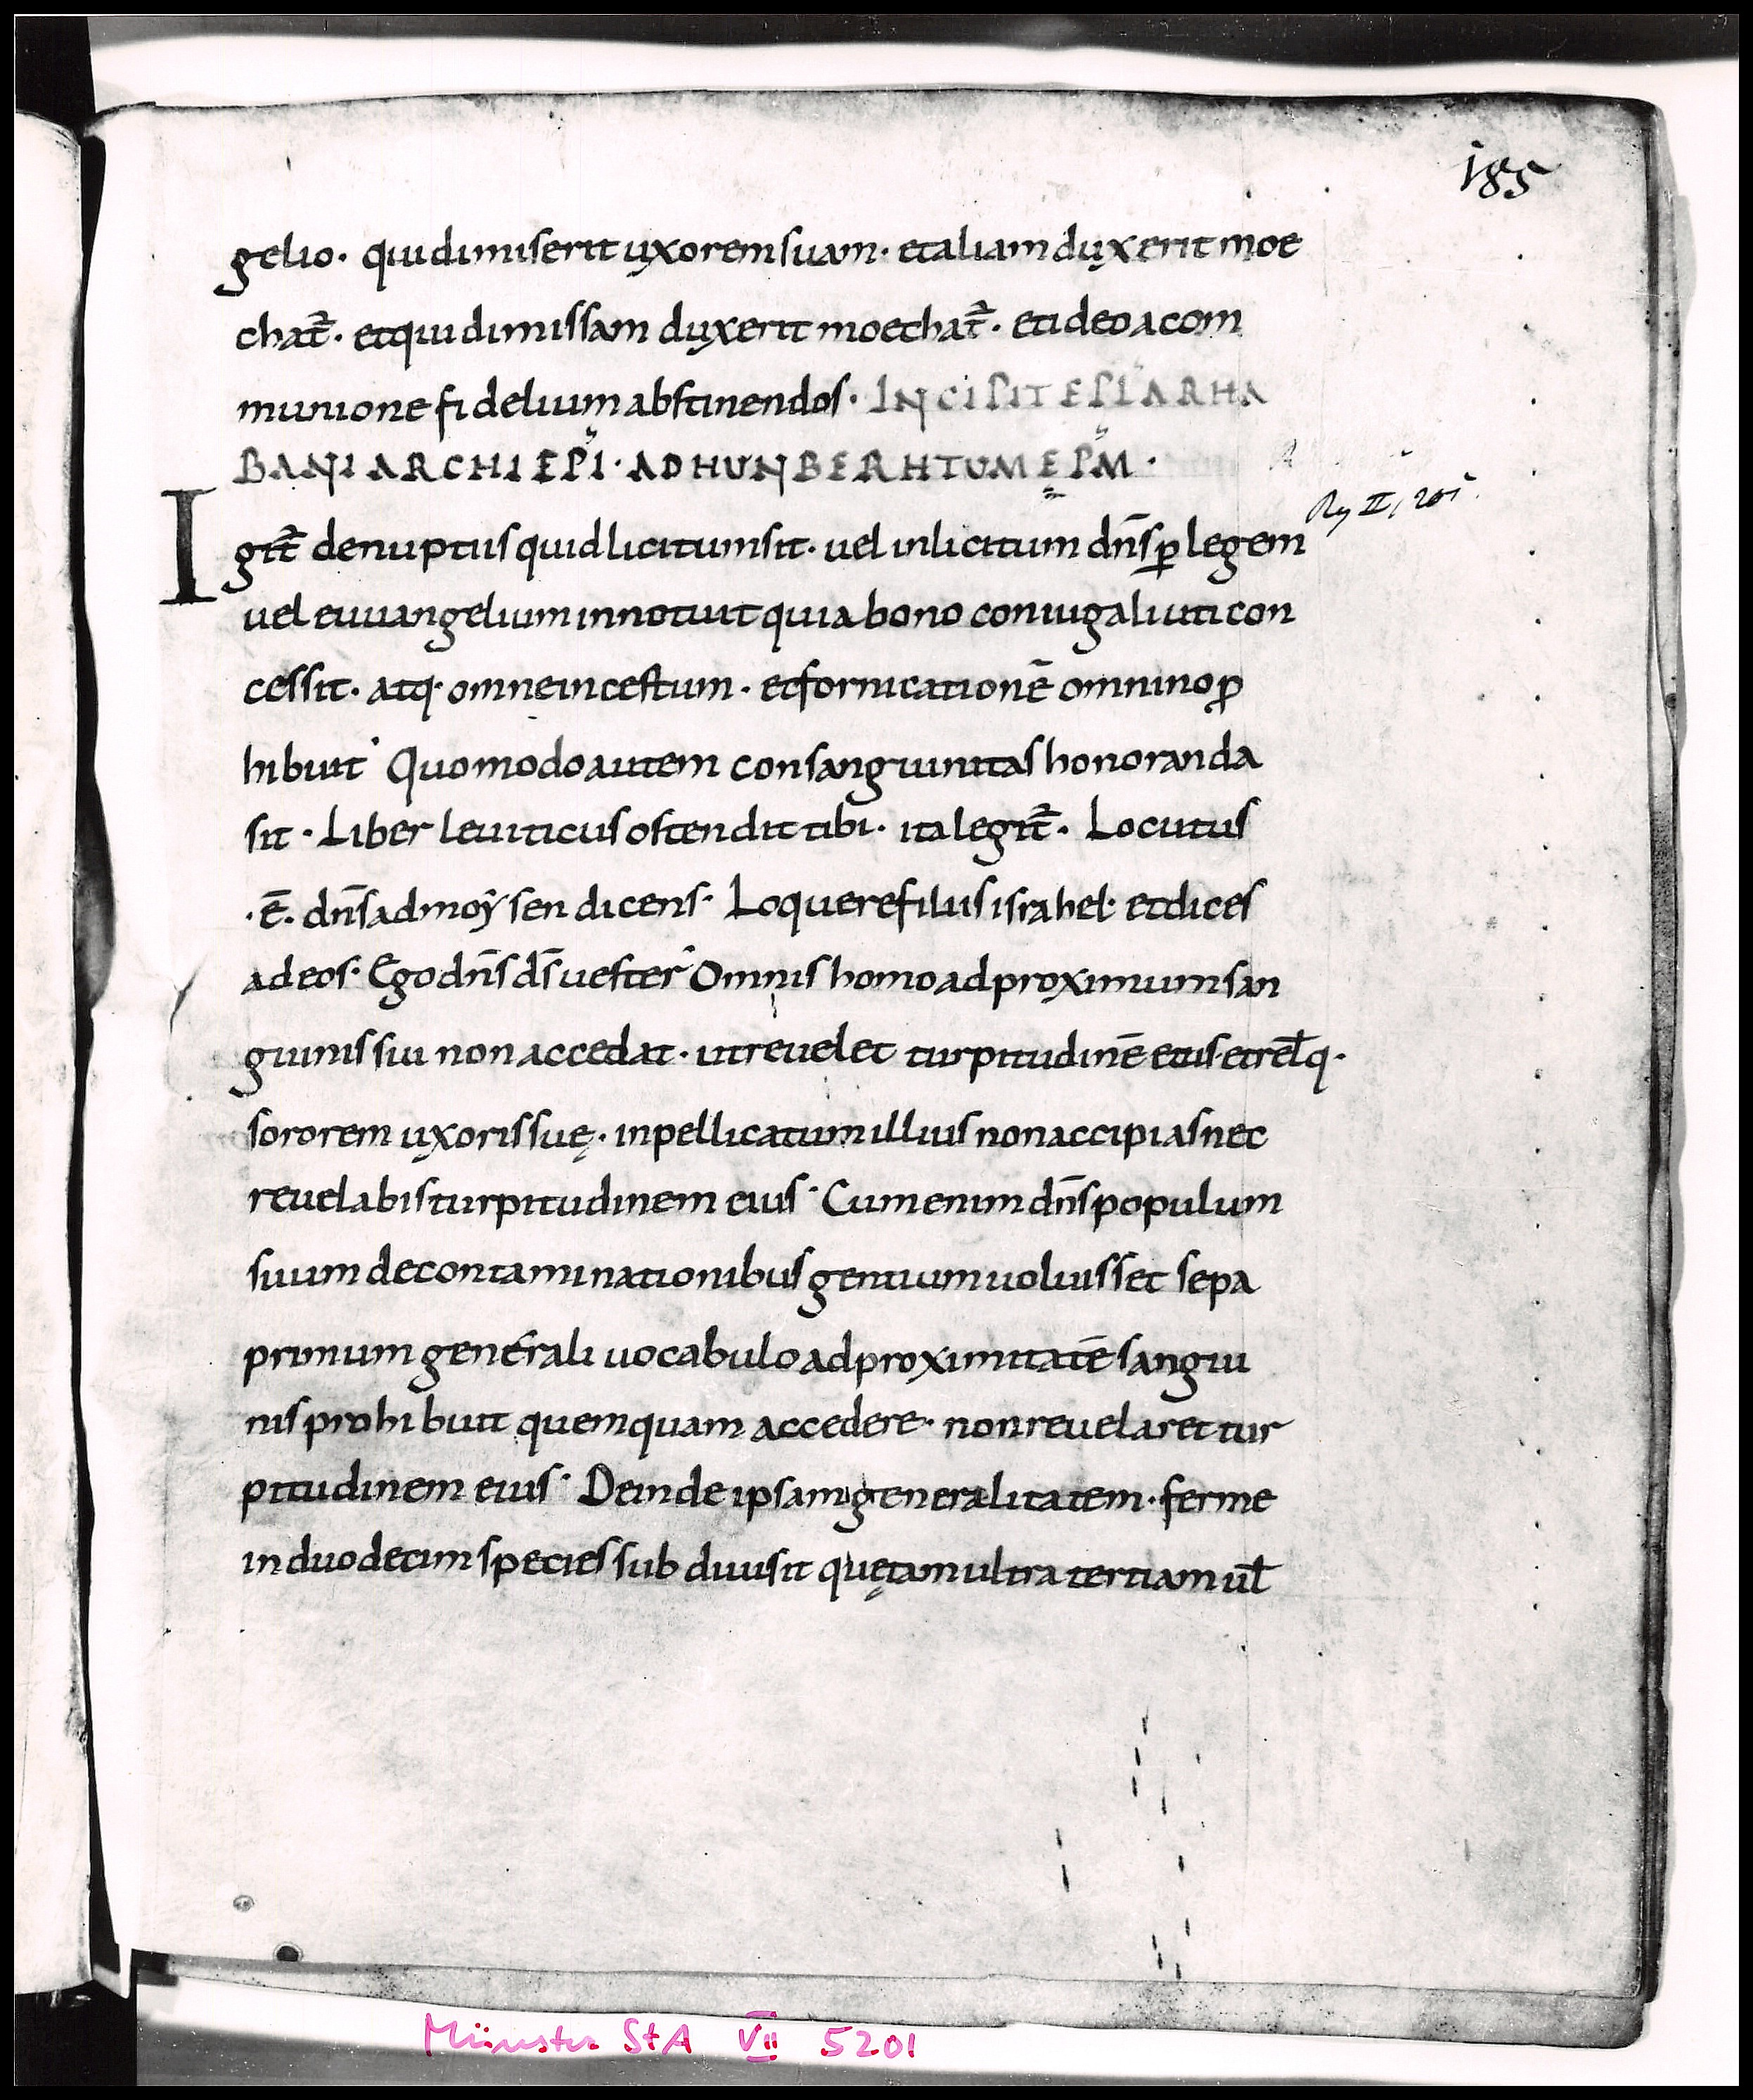 185
gelio· qui dimiserit uxorem suam· et aliam duxerit moe
chat̄· et qui dimissam duxerit moechat̄· et ideo a com
munione fidelium abstinendos· INCIPIT EPĪLA RHA
BANI ARCHIEPĪ· AD HUNBERHTUM EPM̄·
Igit̄ de nuptus quid licitum sit· uel inlicitum dn̄s ꝑ legem
uel euuangelium innotuit quia bono coniugali uti con
cessit· atq· omne incestum· et fornicationē omnino ꝓ
hibuit· Quomodo autem consanguinitas honoranda
sit· Liber leuiticus ostendit tibi· ita legit̄· Locutus
·ē· dn̄s ad moysen dicens· Loquere filiis israhel· et dices
ad eos· Ego dn̄s ds̄ uester· Omnis homo ad proximum san
guinis sui non accedat· ut reuelet turpitudinē eius et rel̄q·
sororem uxoris suę· in pellicatum illius non accipias nec
reuelabis turpitudinem eius· Cum enim dn̄s populum
suum de contaminationibus gentium uoluisset sepa
primum generali uocabulo ad proximitatē sangui
nis prohibuit quemquam accedere· non reuelaret tur
pitudinem eius· Deinde ipsam generalitatem· ferme
in duodecim species subdiuisit quę tam ultra tertiam ul̄
Münster StA VII 5201